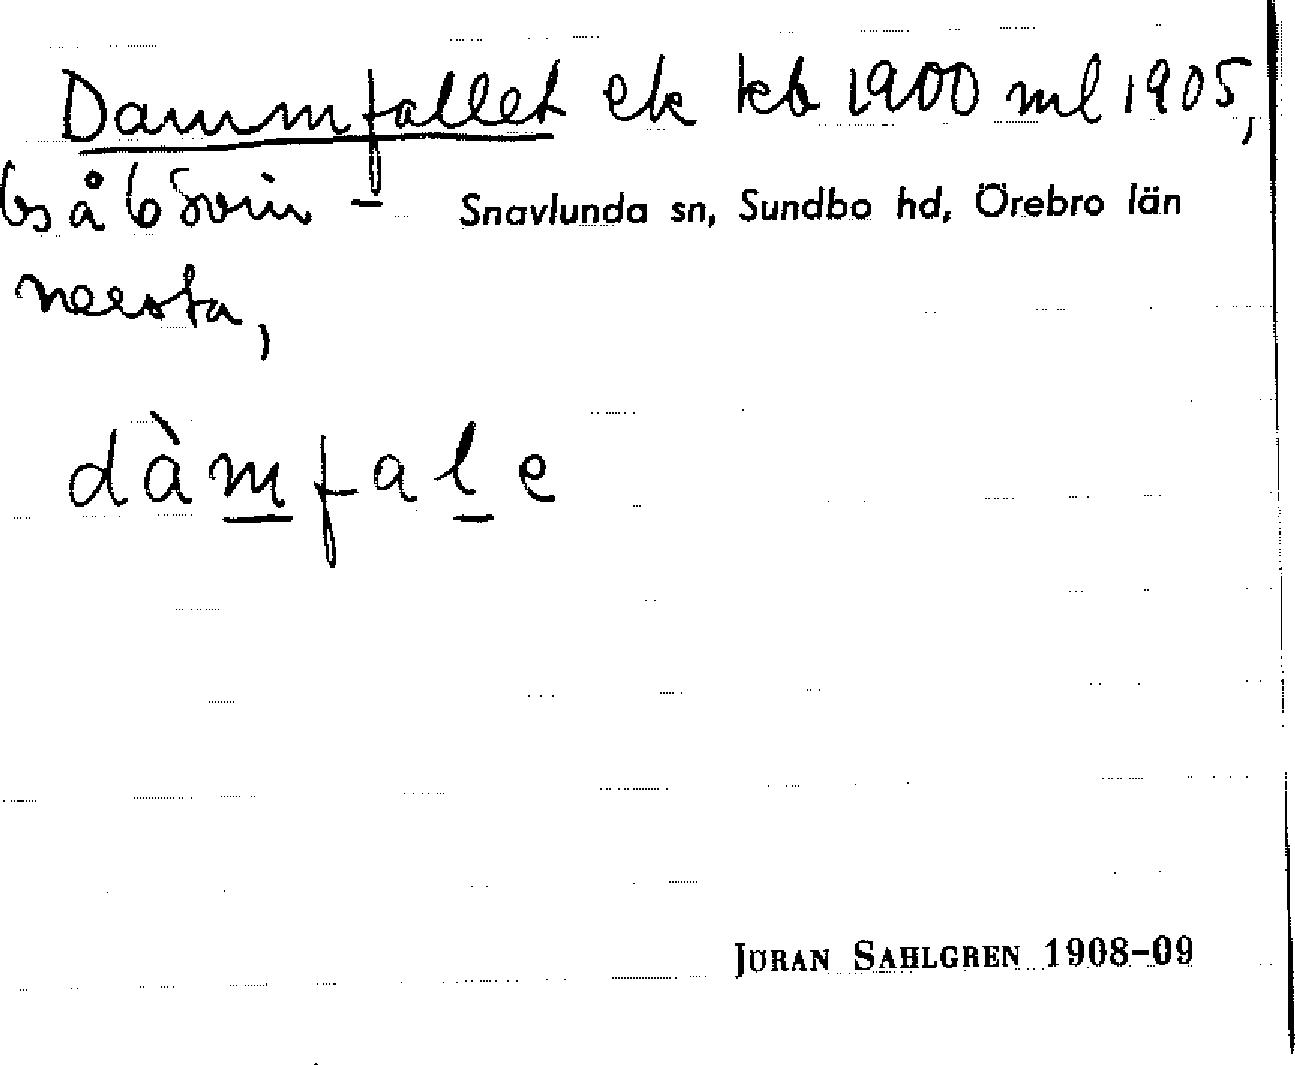 Dammfallet ek kb 1900 ml 1905,
bs å
Snavlunda sn, Sundbo hd, Örebro län
neesta,
dàmfale
JÖRAN SAHLGREN 1908-09